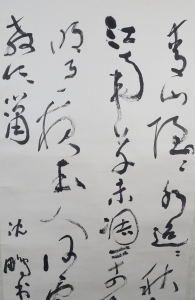 青山隐隐水迢迢秋
江南草未凋二十
明月夜玉人何处
教吹箫
沈鹏书